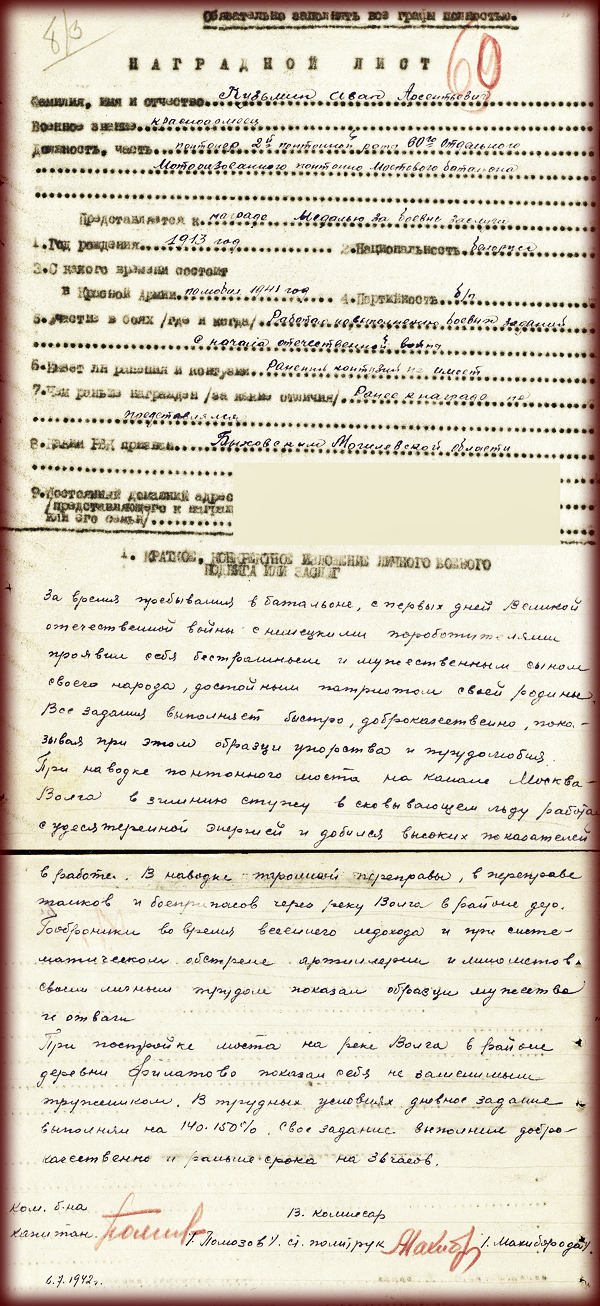 8/3
Обязательно заполнять все графы полностью.
60
НАГРАДНОЙ ЛИСТ
Фамилия, имя и отчество Кузьмин Иван Арсентьевич
Военное звание красноармеец
Должность, часть понтонер 2й понтонной роты 60го Отдельного
Моторизованного понтонно мостового батальона
Представляется к награде Медалью За боевые заслуги
1. Год рождения 1913 год 2. Национальность белорус
3. С какого времени состоит
в Красной Армии помобил 1941 год 4. Партийность б/п
5. Участие в боях /где и когда/ Работал по выполнению боевых заданий
с начала отечественной войны
6. Имеет ли ранения и контузии Ранения контузии не имеет
7. Чем раньше награжден /за какие отличия/ Ранее к награде не
представлялся
8. Каким РВК призван Быховским Могилевской области
9. Постоянный домашний адрес
/представляемого к наград
или его семьи/
1. КРАТКОЕ, КОНКРЕТНОЕ ИЗЛОЖЕНИЕ ЛИЧНОГО БОЕВОГО
ПОДВИГА ИЛИ ЗАСЛУГ
За время пребывания в батальоне, с первых дней Великой
отечественной войны с немецкими поработителями
проявил себя бесстрашным и мужественным сыном
своего народа, достойным патриотом своей родины.
Все задания выполняет быстро, доброкачественно, пока-
зывая при этом образцы упорства и трудолюбия.
При наводке понтонного моста на канале Москва-
Волга в зимнюю стужу в сковывающем льду работал
с удесятеренной энергией и добился высоких показателей
в работе. В наводке паромной переправы, в переправе
танков и боеприпасов через реку Волга в районе дер.
во время весеннего ледохода и при систе-
матическом обстреле артиллерии и минометов,
своим личным трудом показал образцы мужества
и отваги
При постройке моста на реке Волга в районе
деревни Филатово показал себя не заменимым
тружеником. В трудных условиях дневное задание
выполнял на 140-150%. Свое задание выполнил добро-
качественно и раньше срока на 36 часов.
Ком. б-на В. комиссар
капитан /Помозов/. ст. политрук /Макибородa/.
6.7.1942г.